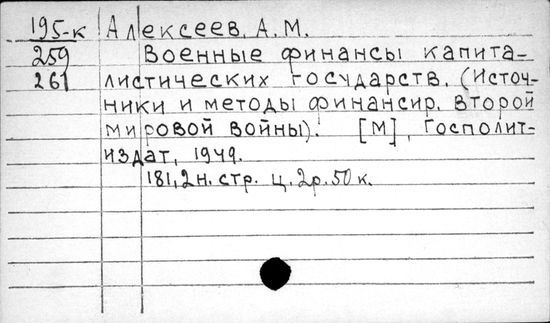 195-к Алексеев, А. М.
259 Военные финансы капита-
261 листических государств. (Источ-
ники и методы финансир. второй
мировой войны). [М], Госполит-
издат, 1949.
181, 2 н. стр. ц. 2 р. 50 к.